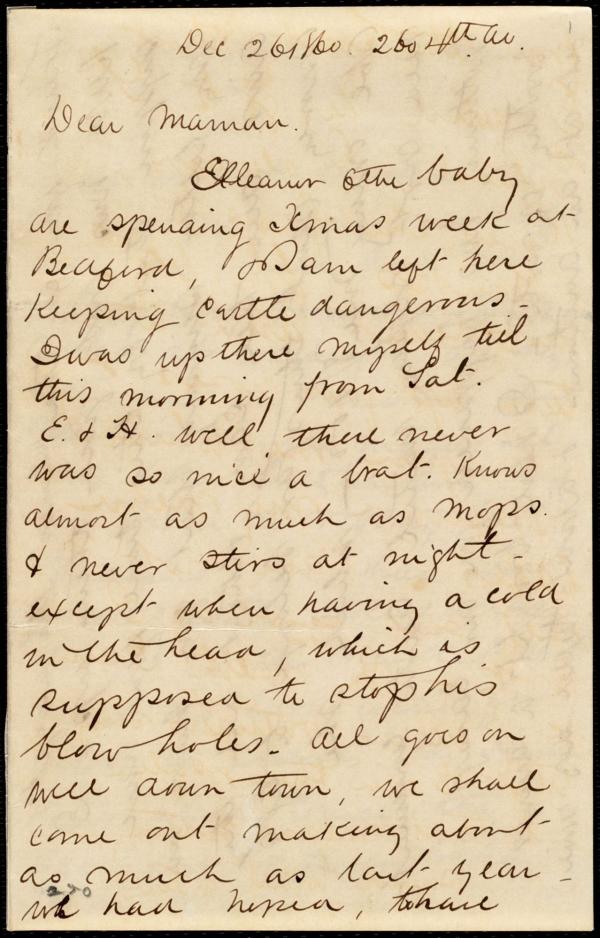 Dec 26 1860. 260 4th Av.
Dear Maman.
Elleanor & the baby
are spending Xmas week at
Bedford, & I am left here
Keeping castle dangerous -
I was up there myself till
this morning from Sat.
E. & H. well there never
was so nice a brat. Knows
almost as much as Mops.
& never stirs at night -
except when having a cold
in the head, which is
supposed to stop his
blow holes. All goes on
well down town, we shall
come out making about
as much as last year -
we had hoped, to have
270
1